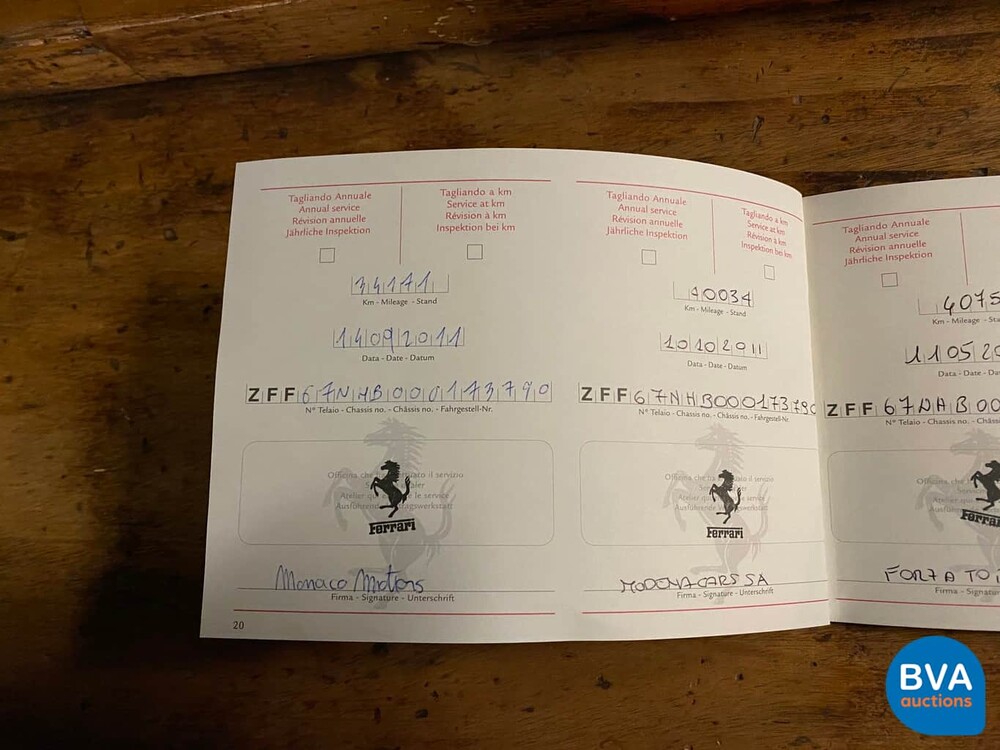 Tagliando Annuale
Annual service
Révision annuelle
Jährliche Inspektion
Tagliando a km
Service at km
Révision à km
Inspektion bei km
34171
Km - Mileage - Stand
14092011
Data - Date - Datum
ZFF67NHB000173790
N° Telaio - Chassis no. - Châssis no. - Fahrgestell-Nr.
Officina che ha il servizio
Atelier le service
Ferrari
Monaco Motors
Firma - Signature - Unterschrift
20
Tagliando Annuale
Annual service
Révision annuelle
Jährliche Inspektion
Tagliando a km
Service at km
Révision à km
Inspektion bei km
40034
Km - Mileage - Stand
10102911
Data - Date - Datum
ZFF67NHB000173790
N° Telaio - Chassis no. - Châssis no. - Fahrgestell-Nr.
Officina che il servizio
Ferrari
MODENA CARS SA
Firma - Signature - Unterschrift
Tagliando Annuale
Annual service
Révision annuelle
Jährliche Inspektion
4075
Km - Mileage - Sta
110520
Data - Date - Datu
ZFF67NHB00
N° Telaio - Chassis no. - Châss
Officina che
Ferrari
FORZA TO
Firma - Signature - Un
BVA
auctions